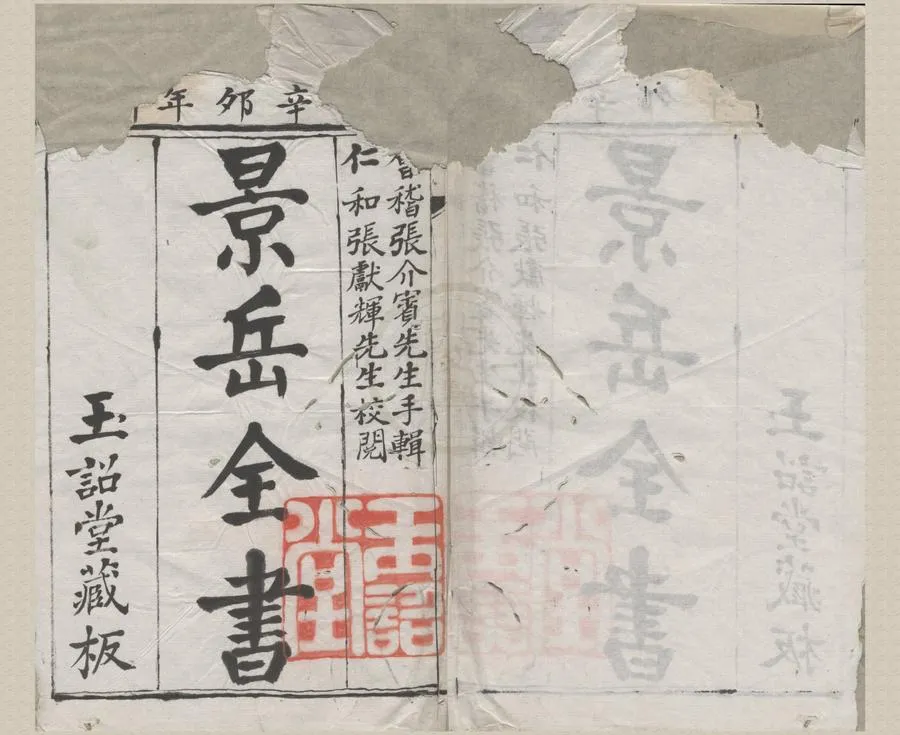 辛夘年
會稽張介賓先生手輯
仁和張獻輝先生校閱
景岳全書
玉詔堂藏板
玉詔
堂